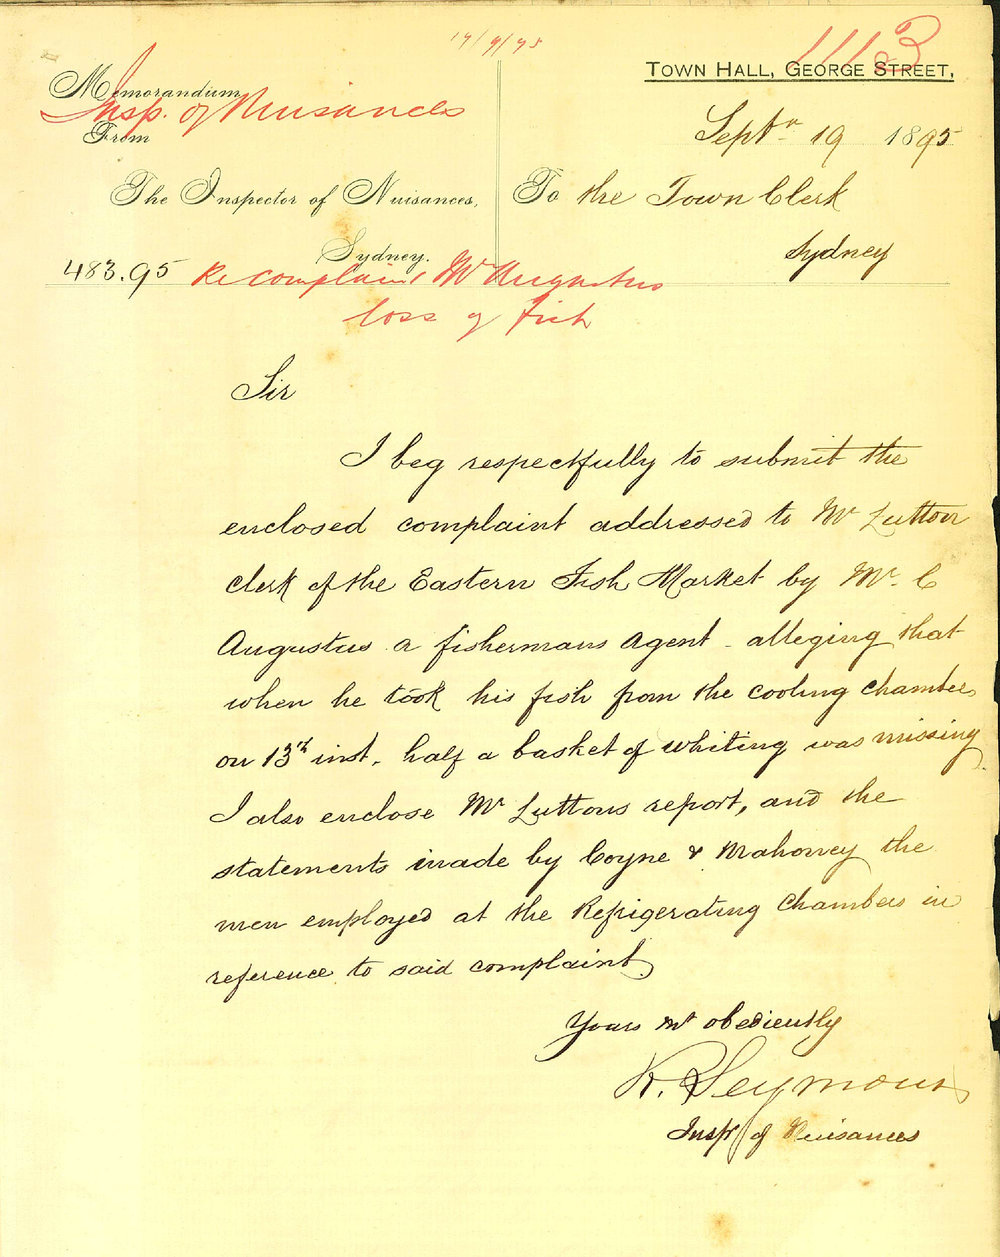 19/9/95
1113
TOWN HALL, GEORGE STREET,
Memorandum
Insp. of Nuisances
From
Septr 19 1895
The Inspector of Nuisances,
To the Town Clerk
Sydney.
Sydney
483.95 Re complaint Mr Augustus
loss of Fish
Sir
I beg respectfully to submit the
enclosed complaint addressed to Mr Lutton
Clerk of the Eastern Fish Market by Mr. C
Augustus a fishermans Agent - alleging that
when he took his fish from the cooling chambers
on 13th inst. half a basket of whiting was missing.
I also enclose Mr Luttons report, and the
statements made by Coyne & Mahoney the
men employed at the Refrigerating Chambers in
reference to said complaint.
Yours mt obediently
R. Seymour
Inspr of Nuisances